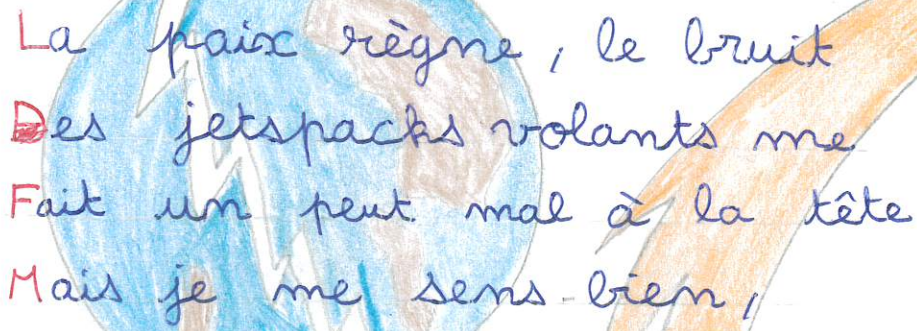 La paix règne, le bruit
Des jetspacks volants me
Fait un peut mal à la tête
Mais je me sens bien,